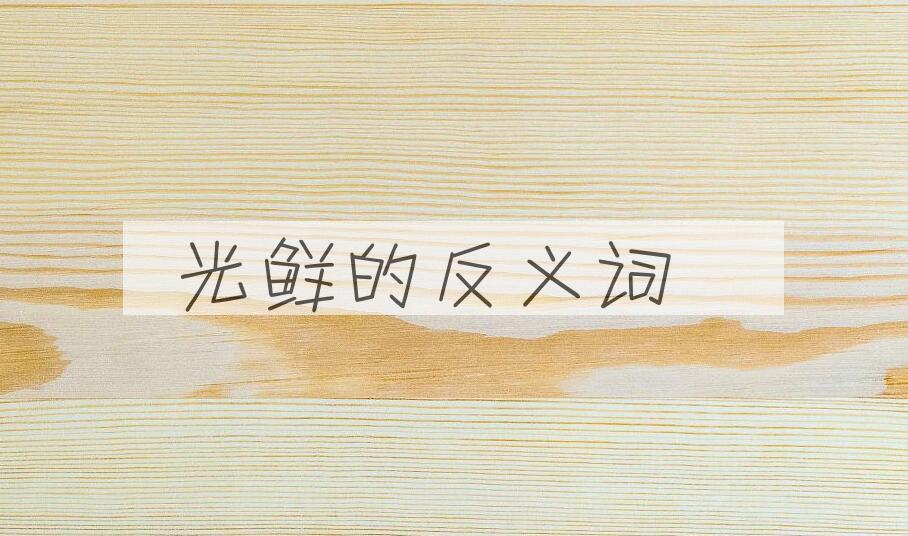 光鲜的反义词